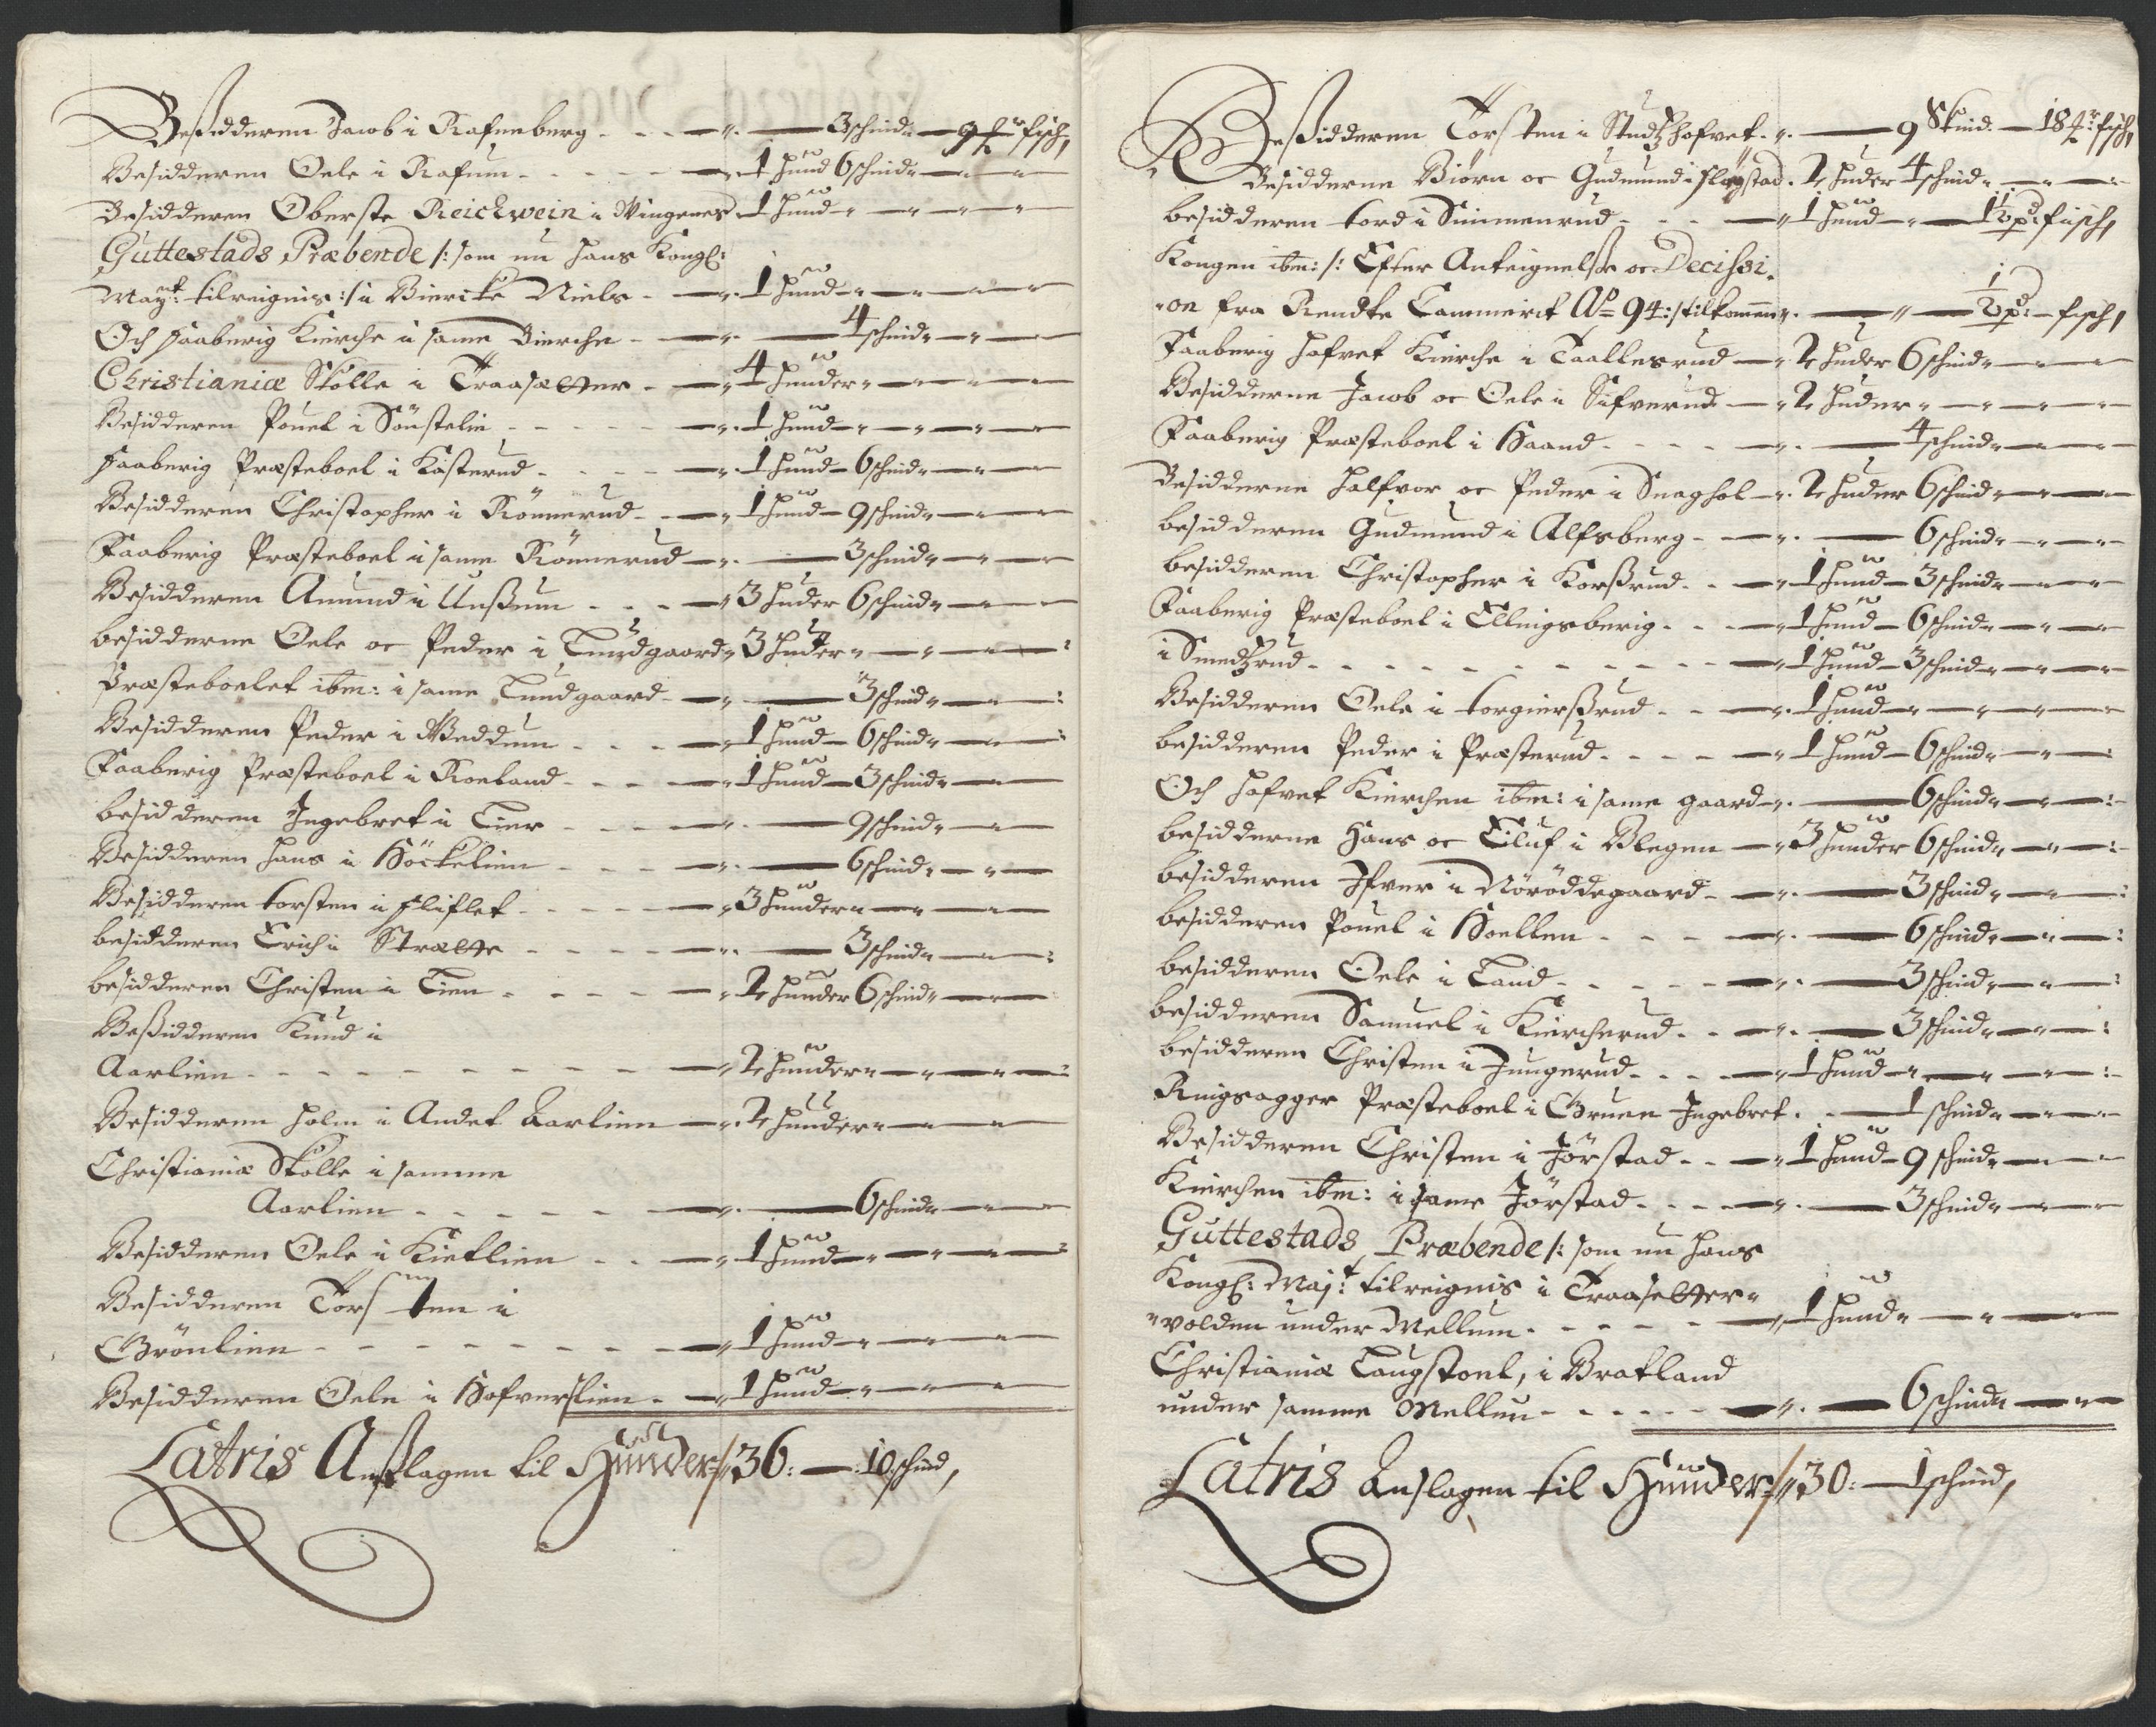 Beßidderen Jacob i Rafneberg - - - 3 schind - 9 ℔r fisch,
Besidderen Oele i Rafum - - - 1 hund 6 schind
Besidderen Oberste Reichwein i Wingenes 1 hund
Guttestads Præbende /: som nu hans Kongl:
Mayt: tilreignis :/ i Biercke Niels - 1 hund
Och faaberig Kierche i same Bierche - 4 schind
Christianiæ Skolle i Traasætter - 4 hunder
Besidderen Pouel i Sönstelie - - - 1 hund
faaberig Præsteboel i Kasterud - - - 1 hund - 6 schind
Besidderen Christopher i Rönnerud - - 1 hund - 9 schind
Faaberig Præsteboel i same Rönnerud - 3 schind
Besidderen Amund i Unßum - - - 3 huder 6 schind
besidderne Oele oc Peder i Lundgaard 3 huder
Præsteboelet ibm: i same Lundgaard - 3 schind
Besidderen Peder i Weddum - - - 1 hund - 6 schind
Faaberig Præsteboel i Roeland - - - 1 hund - 3 schind
besidderen Ingebret i Lier - - - 9 schind
Besidderen hans i Höckelien - - - 6 schind
Besidderen torsten i fliflet - - - 3 hunder
besidderen Erich i Strætte - - - 3 schind
besidderen Christen i Lien - - - 2 hunder 6 schind
Beßidderen Knud i
Aarlien - - - 2 hunder
Besidderen holm i Andet Aarlien - 2 hunder
Christianiæ Skolle i samme
Aarlien - - - 6 schind
Besidderen Oele i Kietlien - - - 1 hund
Besidderen Torsten i
Grönlien - - - 1 hund
Besidderen Oele i Hofverslien - 1 hund
Latris Anßlagen til Hunder /: 36: - 10 schind,
Beßidderen Torsten i Studtzhofvet - 9 Skind - 18 ℔r fisch,
Besidderne Biörn oc Gudmund i fløgstad - 2 huder 4 schind
besidderen tord i Simmenrud - - - 1 hund - 1½ pd: fisch,
Kongen ibm: /: Efter Anteignelße oc Decissi-
-on fra Rendte Cammerit Ao 94: tilkommen - ½ pd: - fisch,
Faaberig hofvet Kierche i Taallesrud - 2 huder 6 schind
Besidderne Jacob oc Oele i Sifverud - 2 huder
Faaberig Præsteboel i Haand - - - 4 schind
Besidderne halfvor oc Peder i Snaghol - 2 huder 6 schind
besidderen Gudmund i Alfsberg - - - 6 schind
besidderen Christopher i Korßrud - - 1 hund - 3 schind
Faaberig Præsteboel i Ellingsberig - - - 1 hund - 6 schind
i Smedtzrud - - - 1 hund - 3 schind
Besidderen Oele i torgierßrud - - - 1 hund
besidderen Peder i Præsterud - - - 1 hund - 6 schind
Och hofvet Kierchen ibm: i same gaard - 6 schind
besidderne Hans oc Eiluf i Blegen - 3 hunder 6 schind
besidderen Ifver i Nöröddegaard - 3 schind
besidderen Pouel i Hoellen - - - 6 schind
besidderen Oele i Land - - - 3 schind
besidderen Samuel i Kiercherud - - - 3 schind
besidderen Christen i Jungerud - - - 1 hund
Ringsagger Præsteboel i Gruen Ingebret - 1 schind
Besidderen Christen i Jörstad - - 1 hund - 9 schind
Kierchen ibm: i same Jörstad - - - 3 schind
Guttestads Præbende /: som nu hans
Kongl: Maj:t tilreignis i Traasetter-
-volden under Mellum - - - 1 hund
Christianiæ Laugstoel, i Bratland
under samme Mellum - - - 6 schind
Latris Anslagen til Hunder /: 30: - 1 schind,